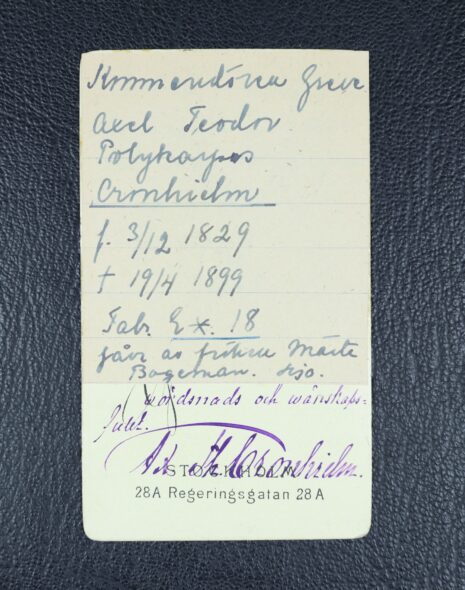 Kommendören Greve
Axel Teodor
Polykarpus
Cronhielm
f. 3/12 1829
† 19/4 1899
Tab. 18
gåva av fröken Märta
Bageman.
wördsnads och wänskaps-
fullt.
Ax Th Cronhielm.
STOCKHOLM
28A Regeringsgatan 28A